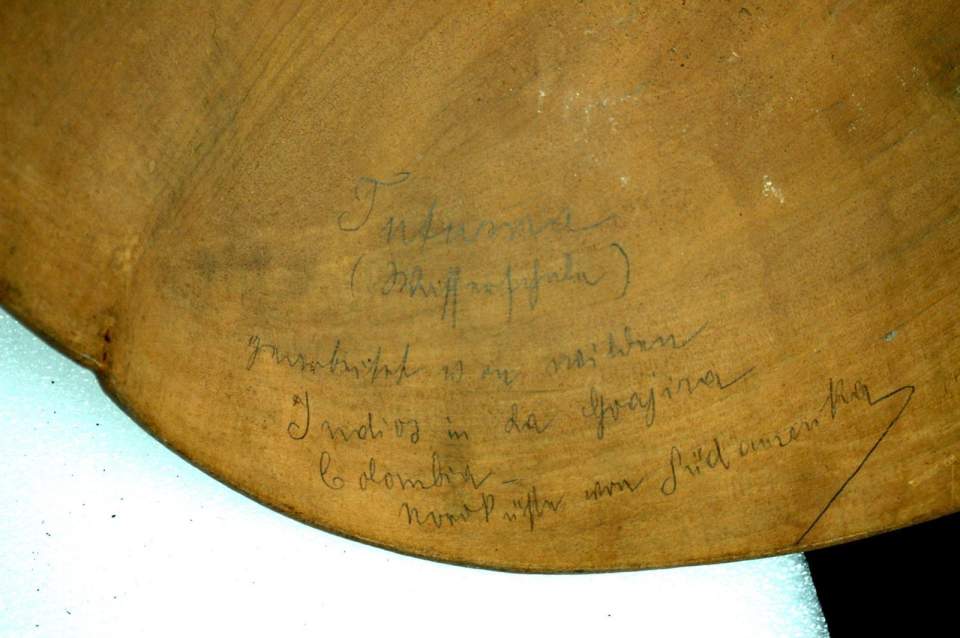 Tutuma
(Wasserschale)
gearbeitet von wilden
Indios in La Goajira
Colombia -
Nordküste von Südamerika